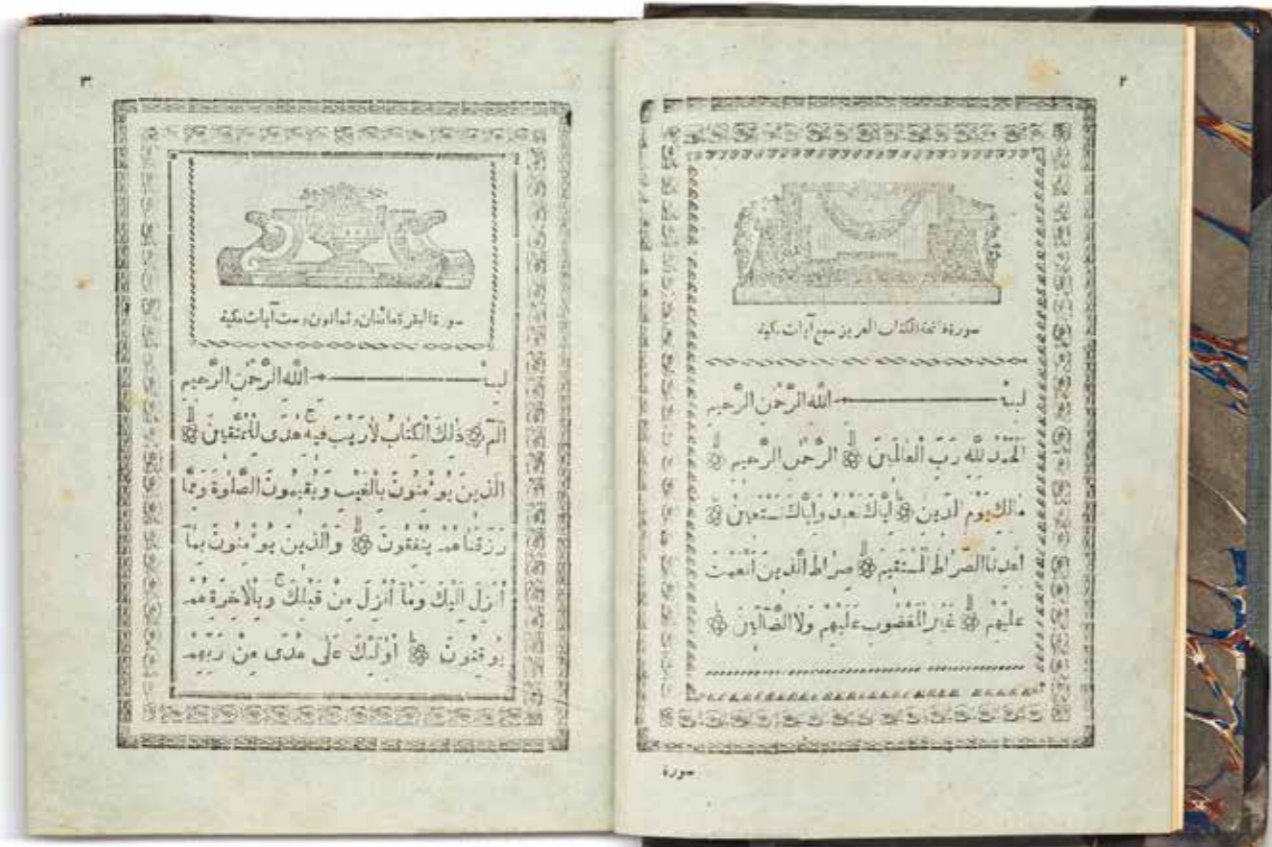 ٢
سورة فاتحة الكتاب العزيز سبع آيات مكية
لبسۡـــــــ الله الرَّحْمٰنِ الرَّحِيمِ
اَلْحَمْدُ لِلّٰهِ رَبِّ الْعَالَمِينَ ۞ الرَّحْمٰنِ الرَّحِيمِ ۞
مَالِكِ يَوْمِ الدِّينِ ۞ اِيَّاكَ نَعْبُدُ وَاِيَّاكَ نَسْتَعِينُ ۞
اِهْدِنَا الصِّرَاطَ الْمُسْتَقِيمَ ۞ صِرَاطَ الَّذِينَ اَنْعَمْتَ
عَلَيْهِمْ ۞ غَيْرِ الْمَغْضُوبِ عَلَيْهِمْ وَلَا الضَّآلِّينَ ۞
سورة
٣
سورة البقرة مائتان وثمانون وست آيات مكية
لبسۡـــــــ اللهِ الرَّحْمٰنِ الرَّحِيمِ
الٓمٓ ۞ ذٰلِكَ الْكِتَابُ لَارَيْبَ فِيهِ ۚ هُدًى لِلْمُتَّقِينَ ۞
اَلَّذِينَ يُوْمِنُونَ بِالْغَيْبِ وَيُقِيمُونَ الصَّلٰوةَ وَمِمَّا
رَزَقْنَاهُمْ يُنْفِقُونَ ۞ وَالَّذِينَ يُوْمِنُونَ بِمَآ
اُنْزِلَ اِلَيْكَ وَمَآ اُنْزِلَ مِنْ قَبْلِكَ ۚ وَبِالْاٰخِرَةِ هُمْ
يُوقِنُونَ ۞ اُوْلٰٓئِكَ عَلٰى هُدًى مِنْ رَبِّهِمْ